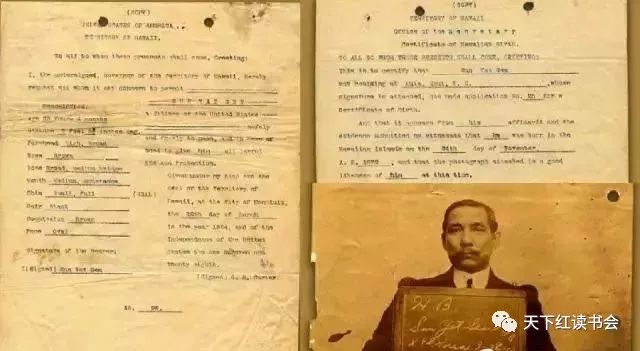 (COPY)
UNITED STATES OF AMERICA
TERRITORY OF HAWAII.
To all to whom these presents shall come, Greeting:
I, the undersigned, Governor of the Territory of Hawaii, hereby
request all whom it may concern to permit
SUN YAT SEN
a Citizen of the United States
safely
and freely to pass, and in case of
need to give him all lawful
Aid and Protection.
Description.
Age 33 years 4 months
Stature 5 feet, inches
Forehead high, broad
Eyes Brown
Nose Broad, medium bridge
Mouth Medium, moustache
Chin Small, full
Hair Black
Complexion Brown
Face Oval
Signature of the Bearer:
(Signed) Sun Yat Sen
(SEAL)
Given under my hand and the
seal of the Territory of
Hawaii, at the City of Honolulu,
the day of March
in the year 1904, and of the
Independence of the United
States the one hundred and
twenty eighth.
(Signed) G. R. Carter.
No.
(COPY)
TERRITORY OF HAWAII
Office of the Secretary
Certificate of Hawaiian Birth.
TO ALL TO WHOM THESE PRESENTS SHALL COME, GREETING:
This is to certify that Sun Yat Sen
now residing at Kula, Maui, T. H. whose
signature is attached, has made application No. for a
Certificate of Birth.
And that it appears from his affidavit and the
evidence submitted by witnesses that he was born in the
Hawaiian Islands on the 24th day of November
A. D. 1870, and that the photograph attached is a good
likeness of him at this time.
Sun Yat
天下红读书会